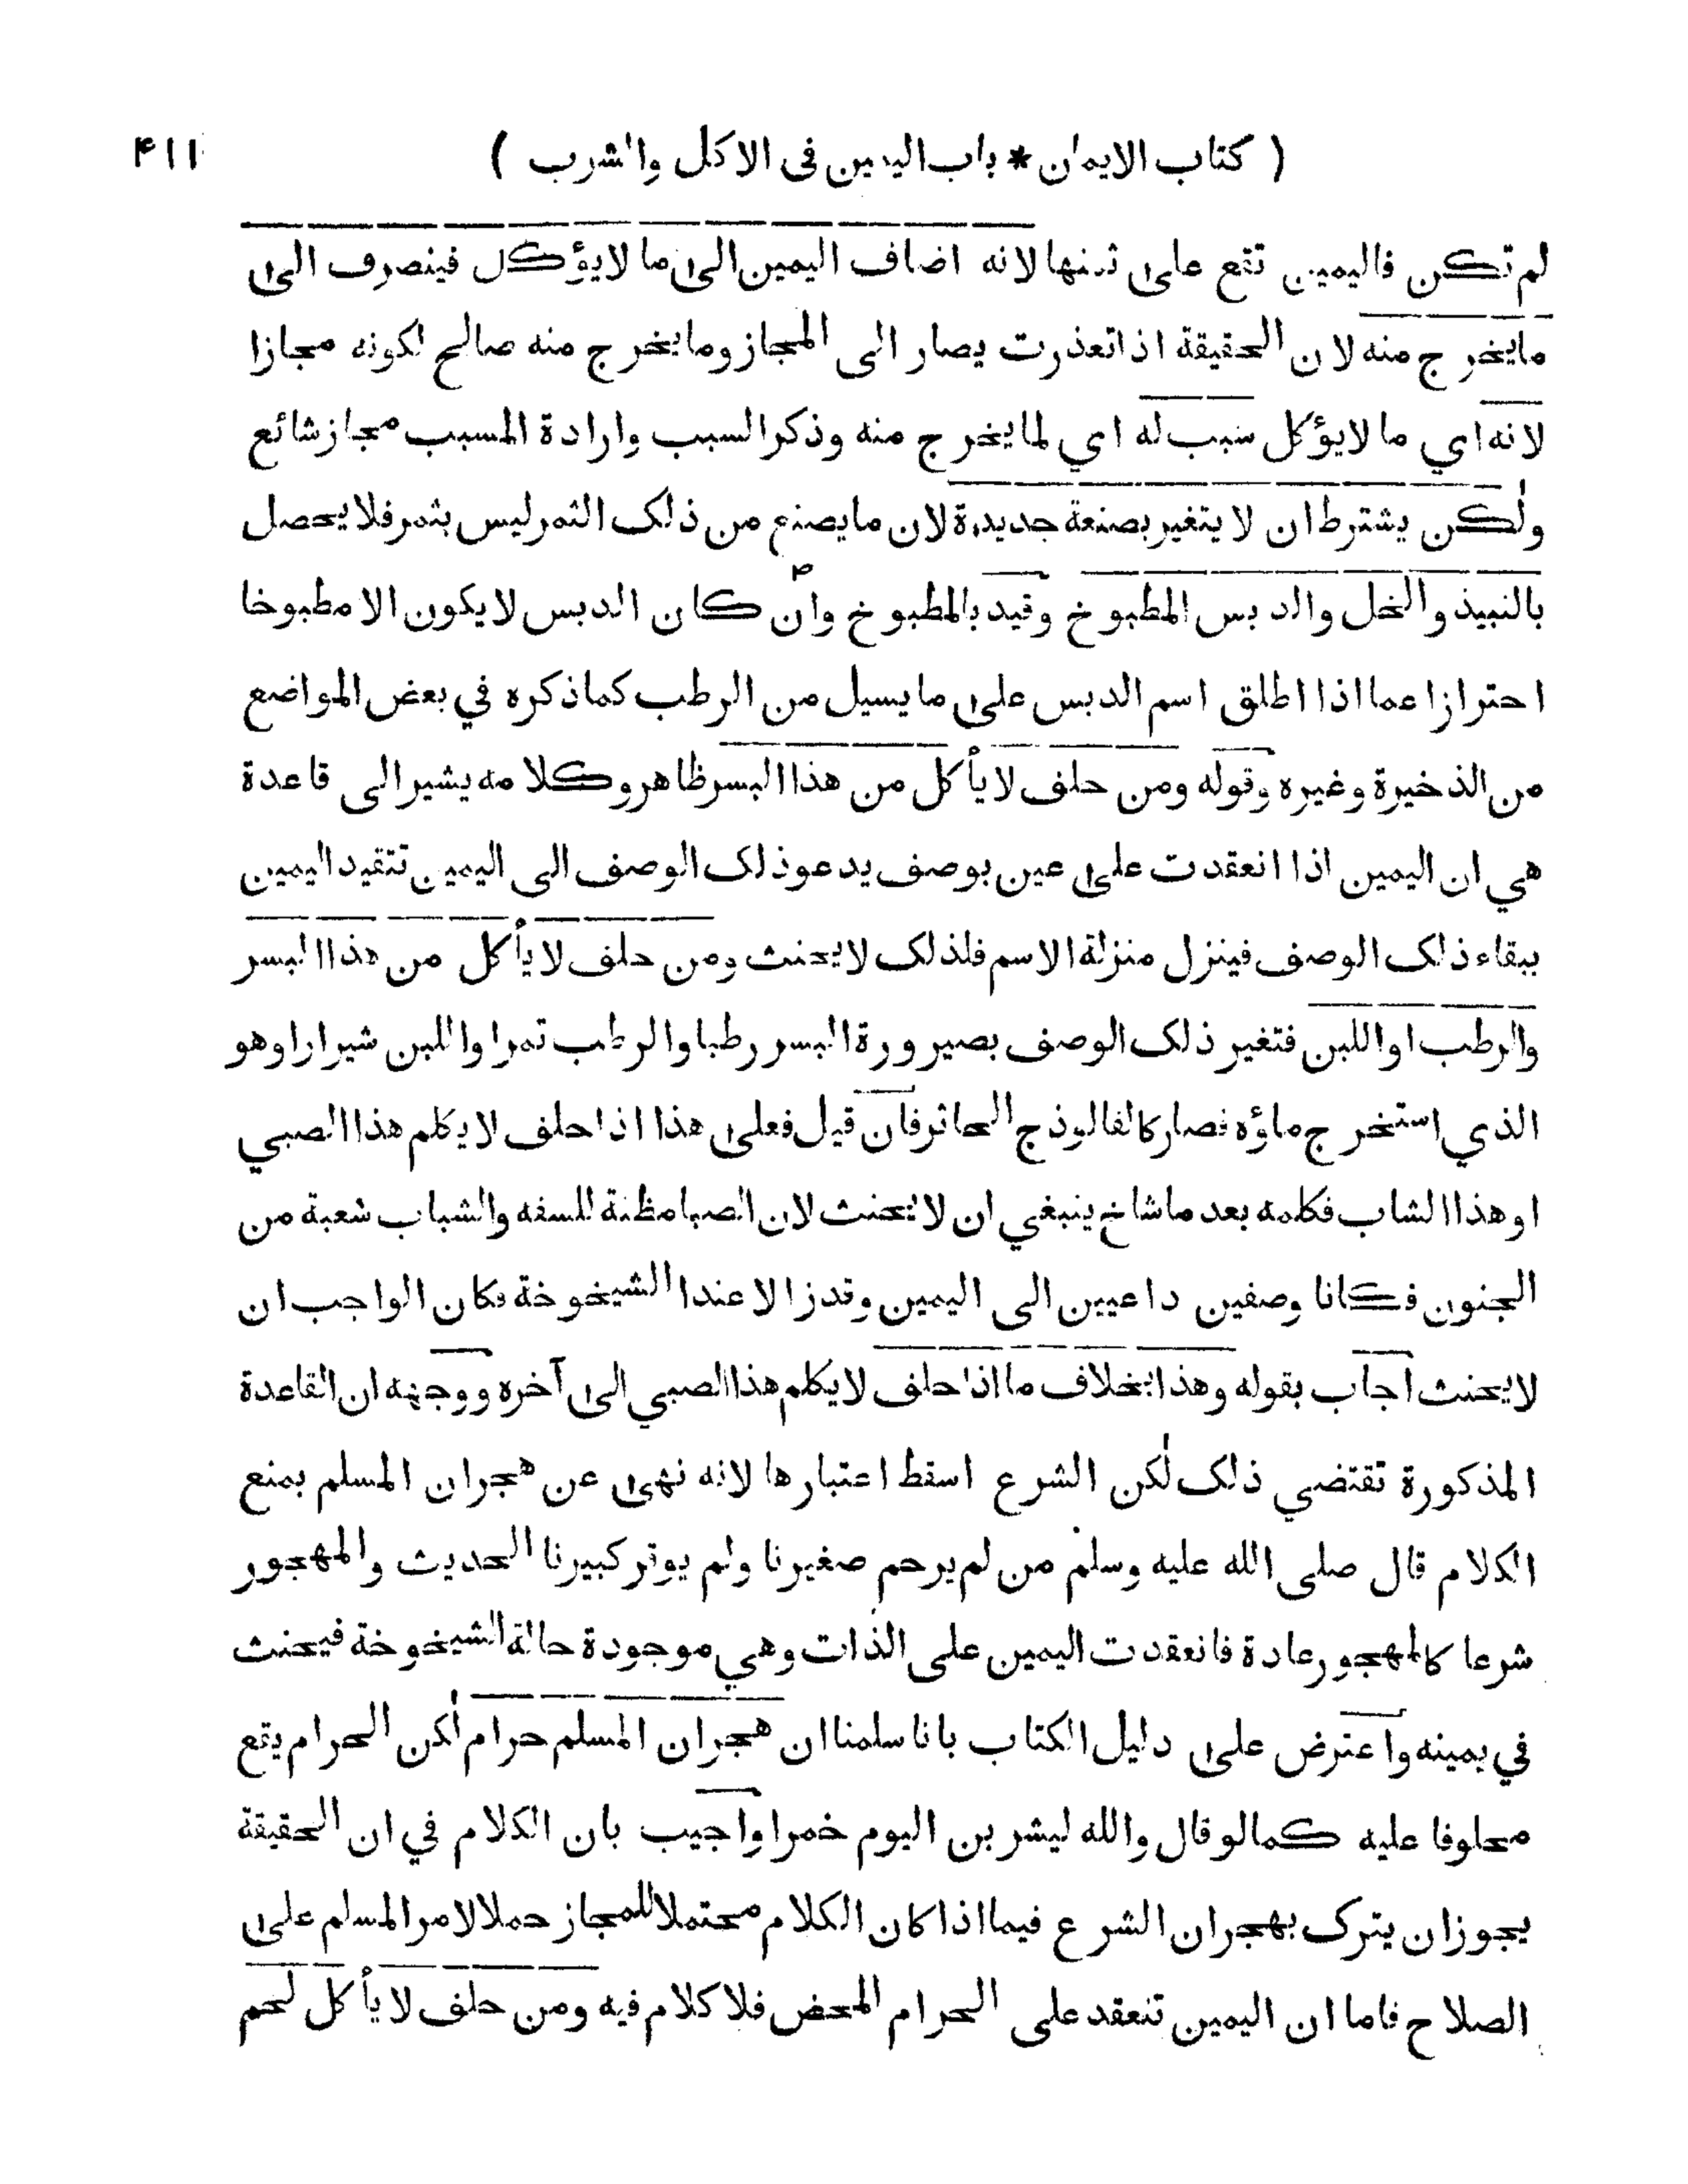 ( كتاب الايمان * باب اليمين فى الاكل والشرب ) ۴۱۱
لم تكن فاليمين تقع على ثمنها لانه اضاف اليمين الى ما لا يؤكل فينصرف الى
ما يخرج منه لان الحقيقة اذا تعذرت يصار الى المجاز وما يخرج منه صالح لكونه مجازا
لانه اي ما لا يؤكل سبب له اي لما يخرج منه وذكر السبب وارادة المسبب مجاز شائع
ولٰكن يشترط ان لا يتغير بصنعة جديدة لان ما يصنع من ذلك الثمر ليس بثمر فلا يحصل
بالنبيذ والخل والدبس المطبوخ وقيد بالمطبوخ وان كان الدبس لا يكون الا مطبوخا
احترازا عما اذا اطلق اسم الدبس على ما يسيل من الرطب كما ذكره في بعض المواضع
من الذخيرة وغيره وقوله ومن حلف لا يأكل من هذا البسر ظاهر وكلامه يشير الى قاعدة
هي ان اليمين اذا انعقدت على عين بوصف يدعو ذلك الوصف الى اليمين تتقيد اليمين
ببقاء ذلك الوصف فينزل منزلة الاسم فلذلك لا يحنث ومن حلف لا يأكل من هذا البسر
والرطب او اللبن فتغير ذلك الوصف بصيرورة البسر رطبا والرطب تمرا واللبن شيرازا وهو
الذي استخرج ماؤه فصار كالفالوذج الخاثر فان قيل فعلى هذا اذا حلف لا يكلم هذا الصبي
او هذا الشاب فكلمه بعد ما شاخ ينبغي ان لا يحنث لان الصبا مظنة للسفه والشباب شعبة من
الجنون فكانا وصفين داعيين الى اليمين وقد زالا عند الشيخوخة فكان الواجب ان
لا يحنث اجاب بقوله وهذا بخلاف ما اذا حلف لا يكلم هذا الصبي الى آخره ووجهه ان القاعدة
المذكورة تقتضي ذلك لٰكن الشرع اسقط اعتبارها لانه نهى عن هجران المسلم بمنع
الكلام قال صلى الله عليه وسلم من لم يرحم صغيرنا ولم يوقر كبيرنا الحديث والمهجور
شرعا كالمهجور عادة فانعقدت اليمين على الذات وهي موجودة حالة الشيخوخة فيحنث
في يمينه واعترض على دليل الكتاب بانا سلمنا ان هجران المسلم حرام لٰكن الحرام يقع
محلوفا عليه كما لو قال والله ليشربن اليوم خمرا واجيب بان الكلام في ان الحقيقة
يجوز ان يترك بهجران الشرع فيما اذا كان الكلام محتملا للمجاز حملا لامر المسلم على
الصلاح فاما ان اليمين تنعقد على الحرام المحض فلا كلام فيه ومن حلف لا يأكل لحم